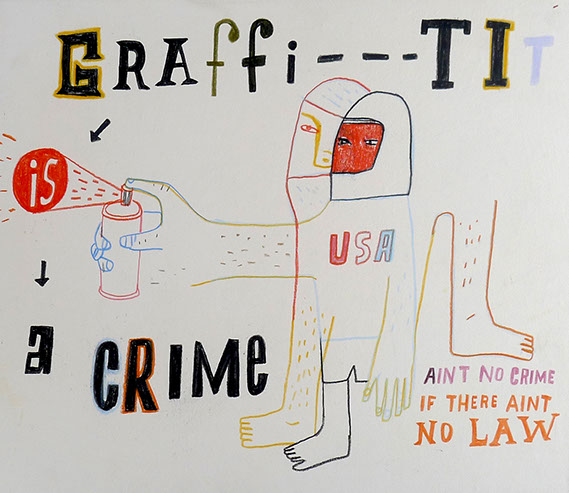 GRAffi----TIT
is
USA
a CRIME
AINT NO CRIME
IF THERE AINT
NO LAW